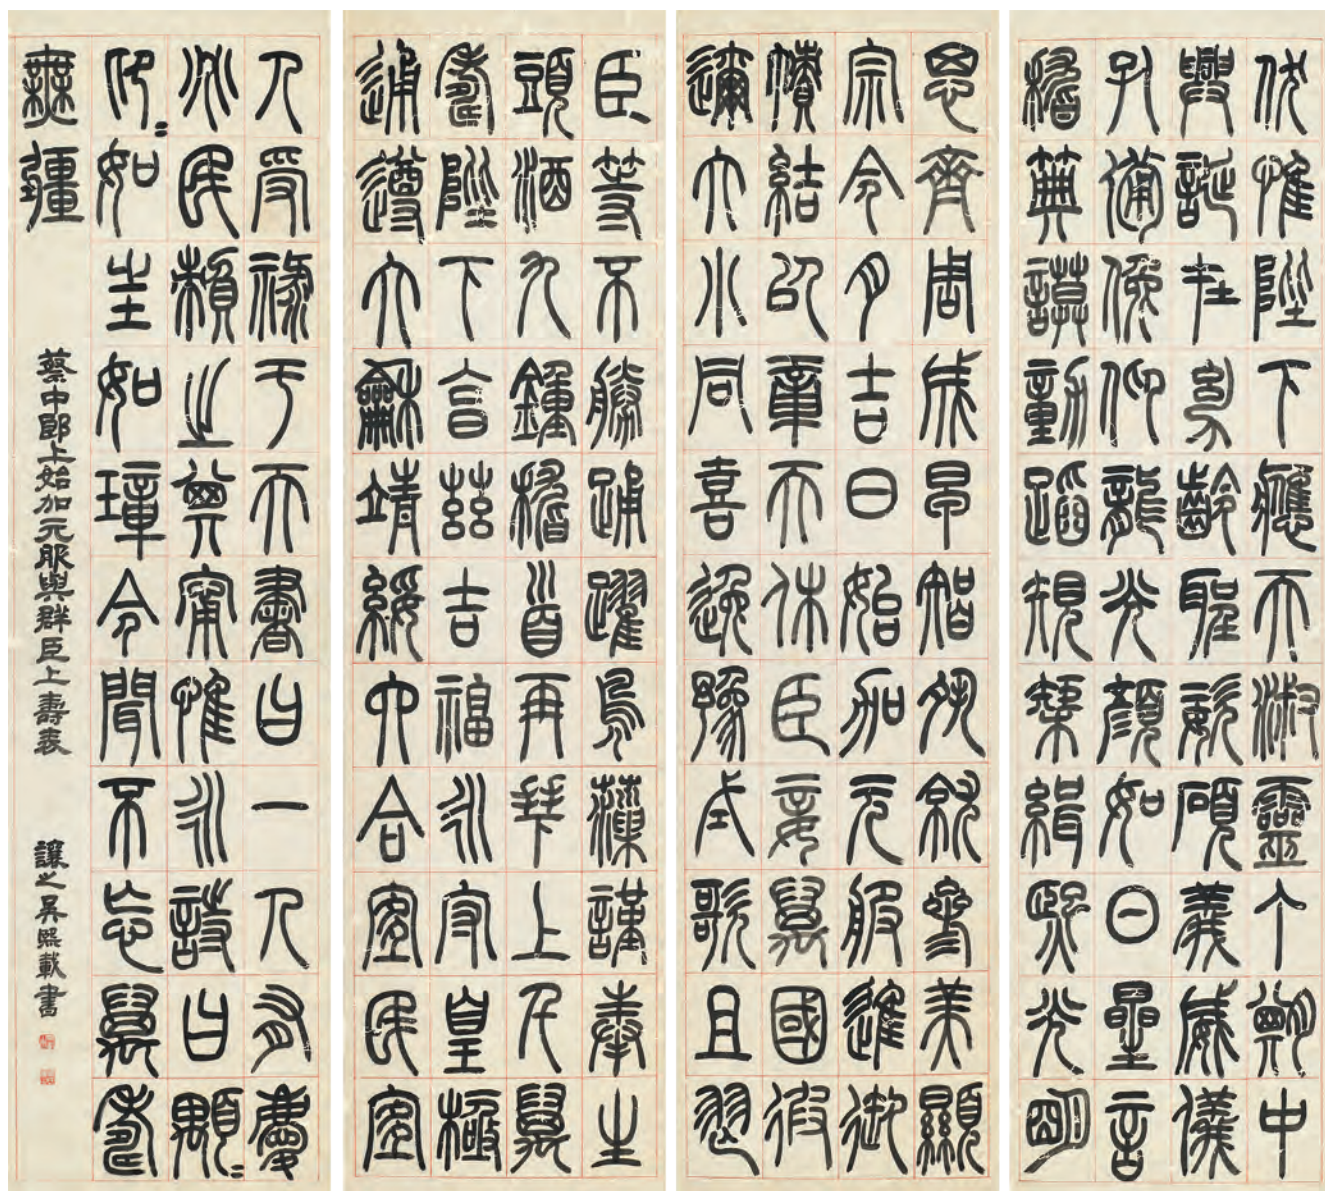 伏惟陛下應天淑靈丁期中
興誕在幼齡聖姿碩義威儀
孔備俯仰龍光顏如日星言
稽典謨動蹈規榘緝熙光明
思齊周成早智夙就參美顯
宗令月吉日始加元服進御
幘結以章天休臣妾萬國遐
邇大小同喜逸豫式歌且舞
臣等不勝踊躍鳧藻謹奉生
頭酒九鍾稽首再拜上千萬
壽陛下享茲吉福永守皇極
通遵大龢靖綏六合宜民宜
人受祿于天書曰一人有慶
兆民賴之其寧惟永詩曰顒〻
卬〻如圭如璋令聞不忘萬壽
無疆
蔡中郎上始加元服與群臣上壽表
讓之吳熙載書